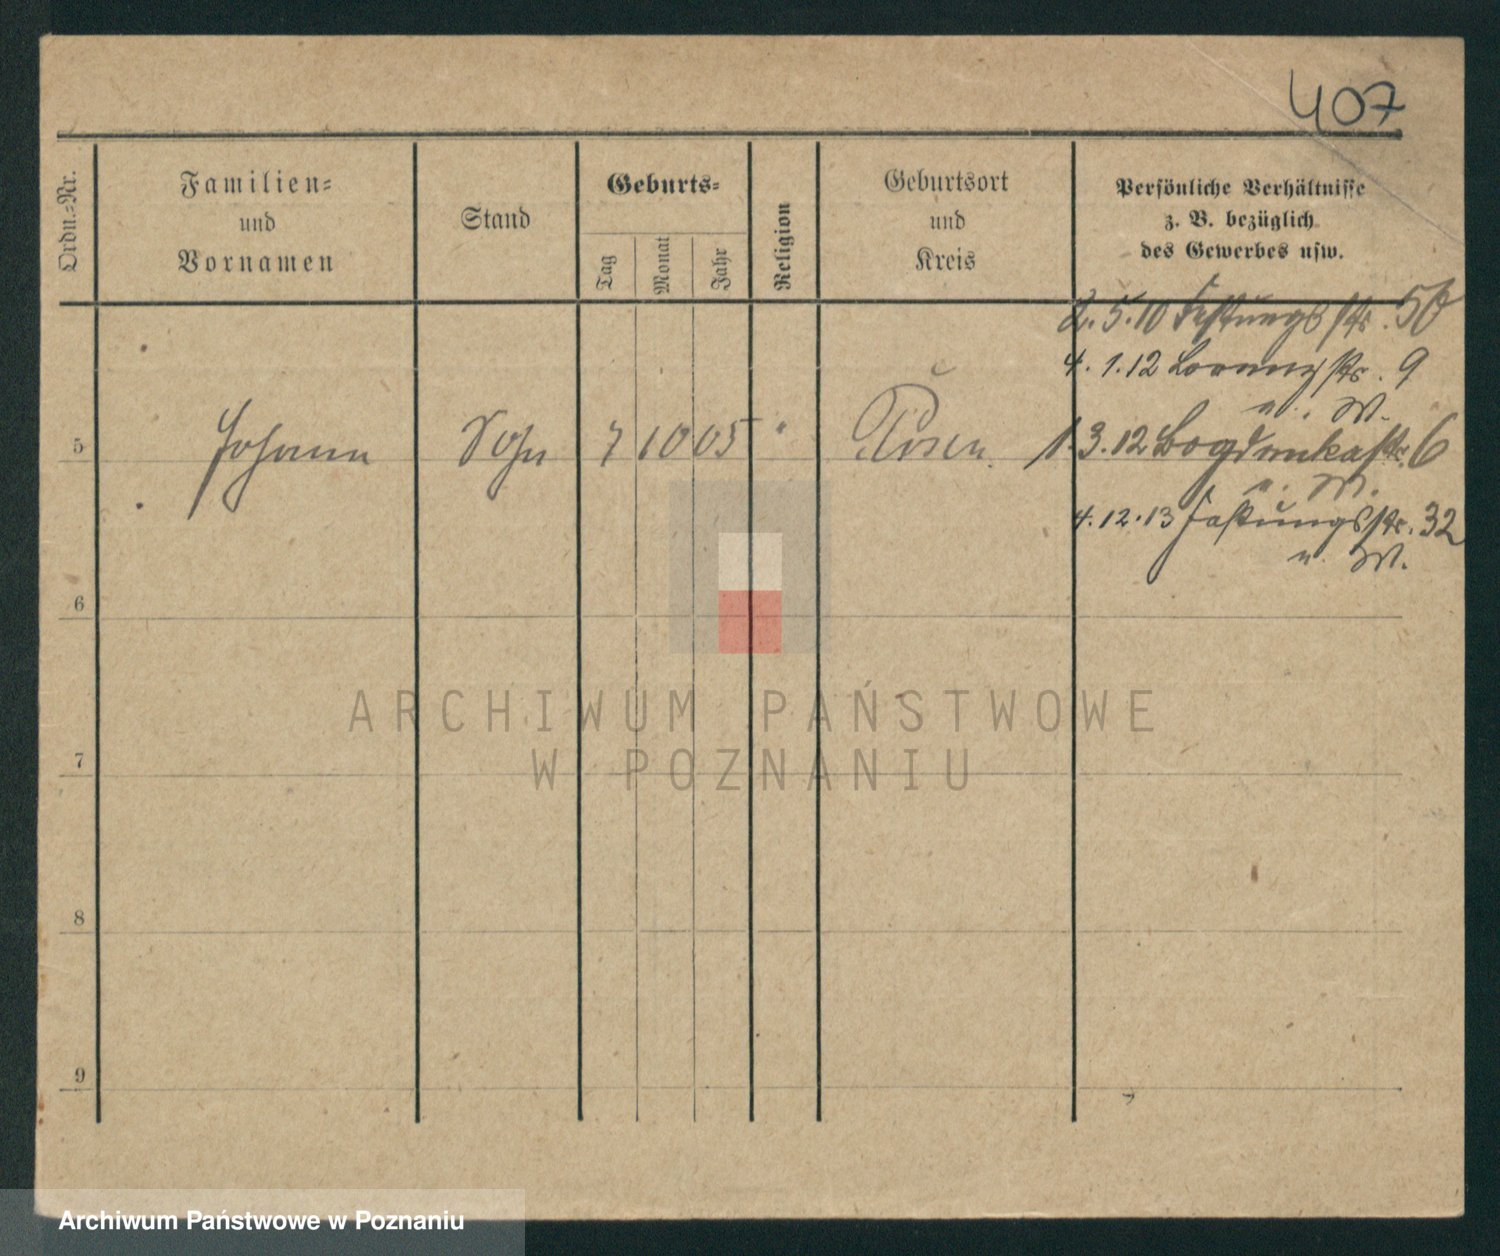 407
Ordn.-Nr.
Familien-
und
Vornamen
Stand
Geburts-
Tag
Monat
Jahr
Religion
Geburtsort
und
Kreis
Persönliche Verhältnisse
z. B. bezüglich
des Gewerbes usw.
2.5.10 Festungsstr.
4.1.12 str. 9
u. W.
5 Johann Sohn 7 10 05 " Posen 1.3.12 Bogdankastr. 6
u. W.
4.12.13 Festungsstr. 32
u. W.
6
7
8
9
ARCHIWUM PAŃSTWOWE
W POZNANIU
Archiwum Państwowe w Poznaniu